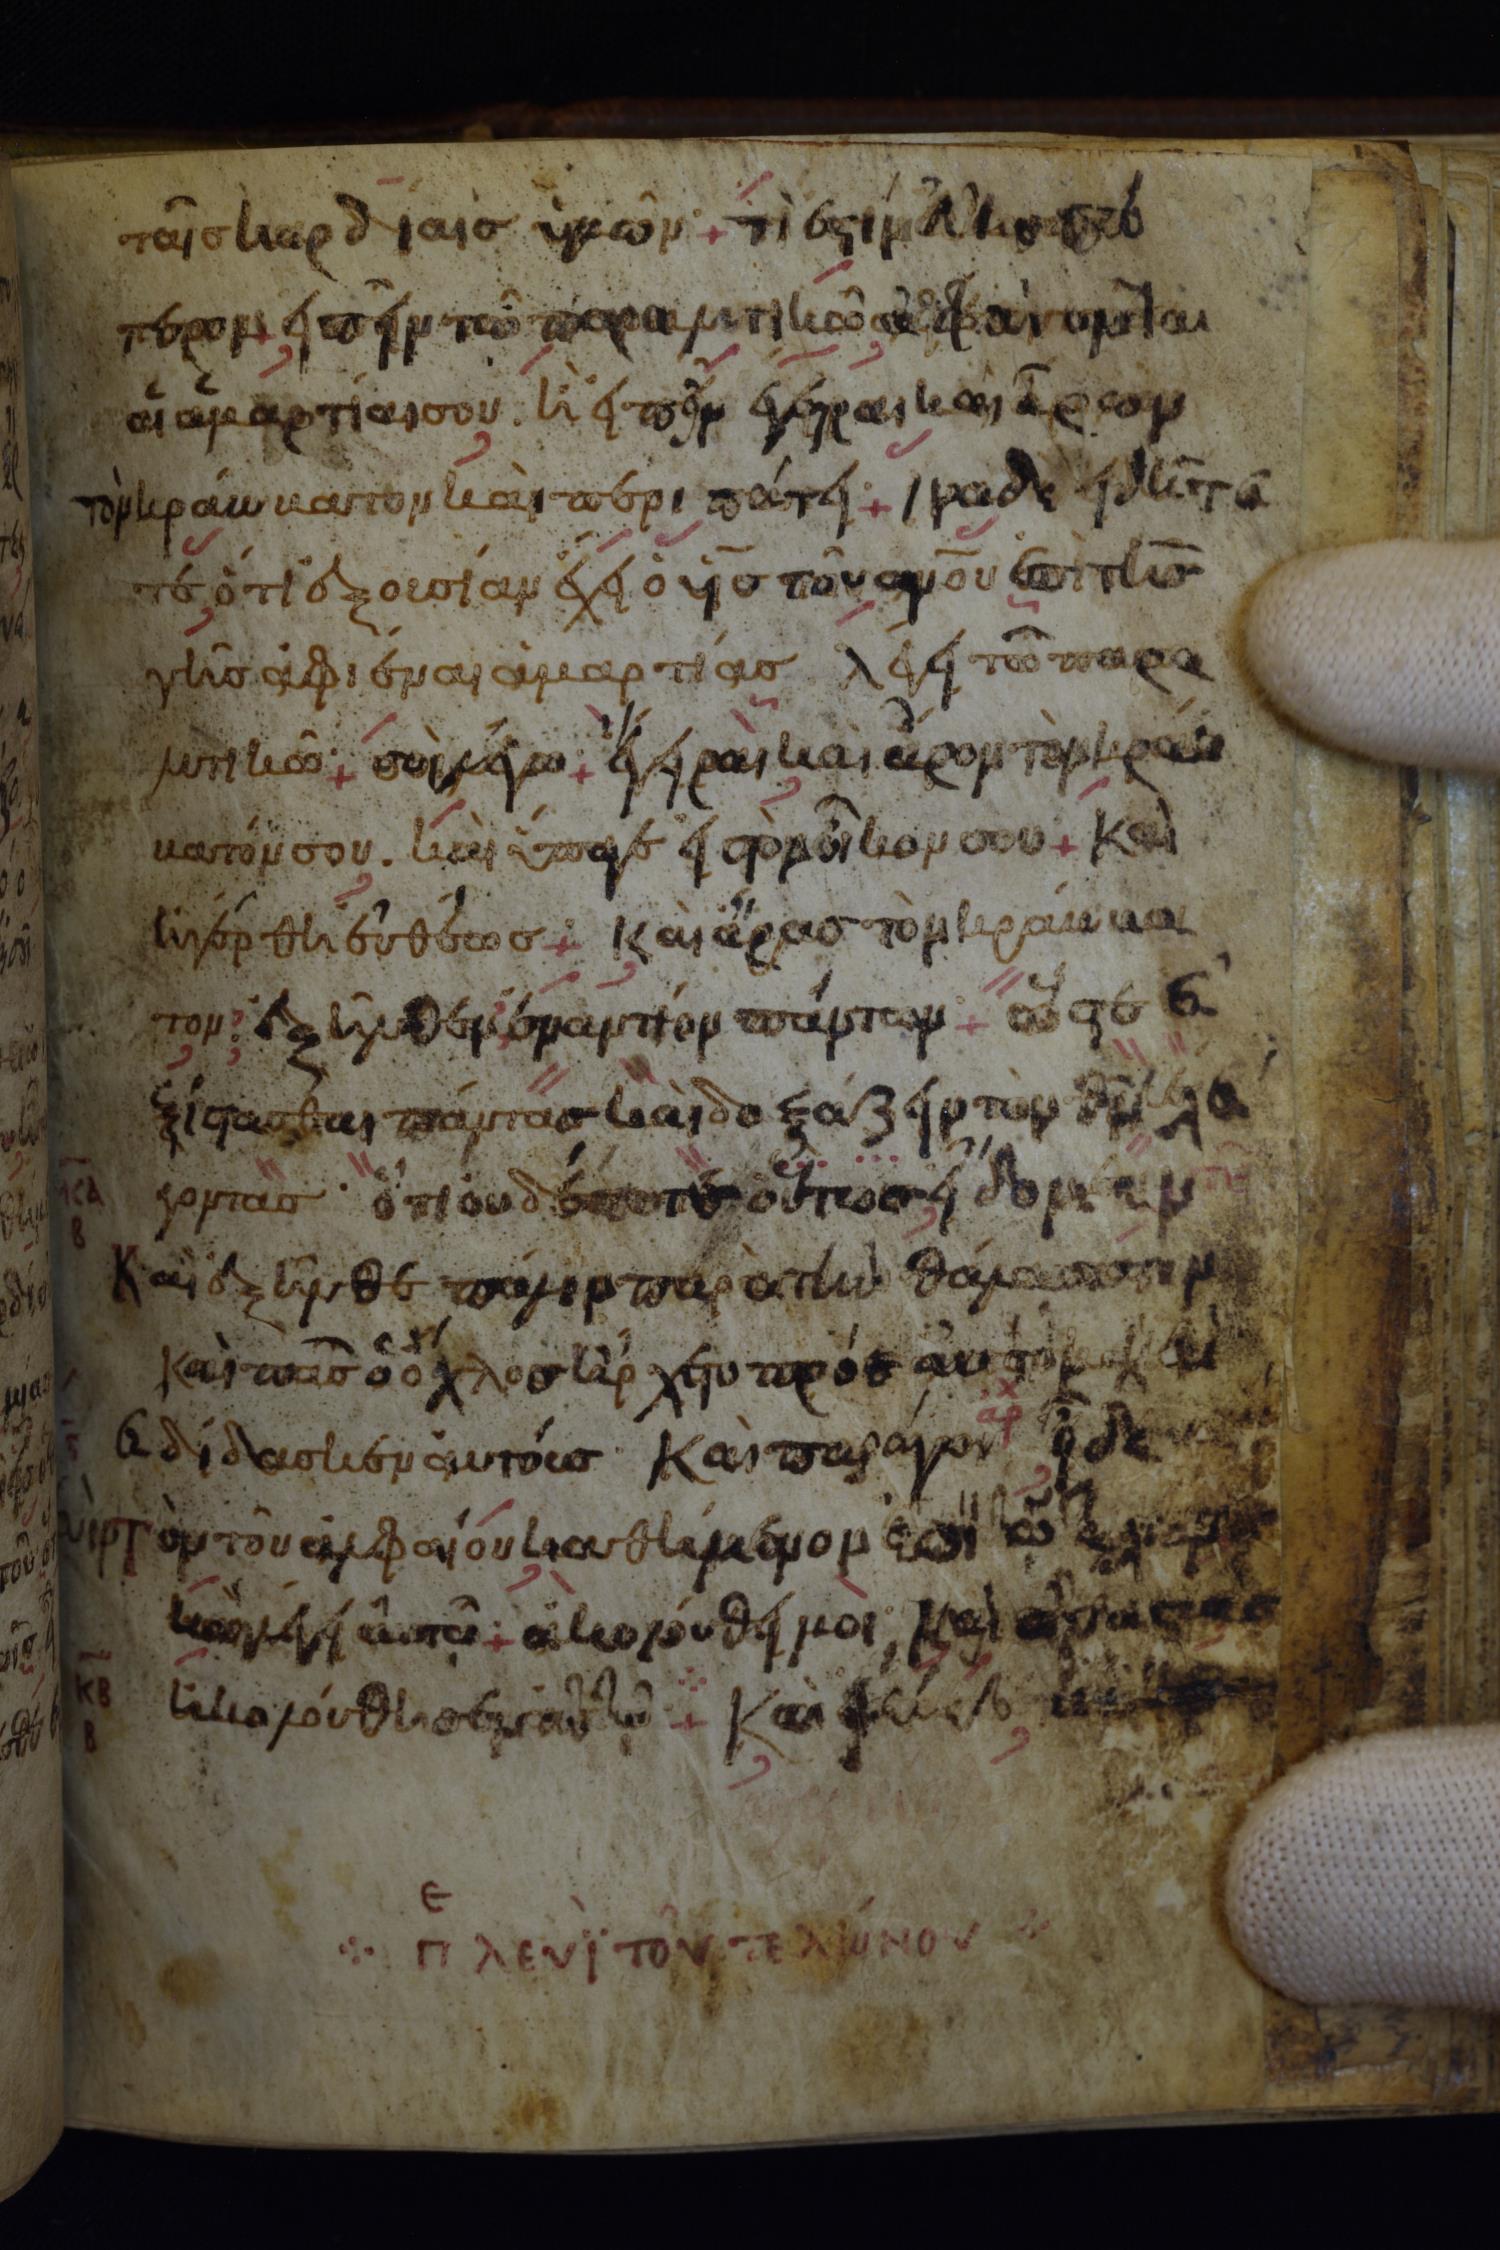 ταῖς καρδίαις ὑμῶν + τί ἐστιν εὐκοπώτε
ρον + εἰπεῖν τῶ παραλυτικῶ ἀφέωνται
αἱ ἁμαρτίαι σου. ἢ εἰπεῖν ἔγειραι καὶ ἆρον
τὸν κράββατον καὶ περιπάτει + ἵνα δὲ εἰδῆτε
ὅτι ἐξουσίαν ἔχει ὁ υἱὸς τοῦ ανου ἐπὶ τῆς
γῆς ἀφιέναι ἁμαρτίας λέγει τῶ παρα
λυτικῶ + σοὶ λέγω + ἔγειραι καὶ ἆρον τὸν κράβ
βατόν σου. καὶ ὕπαγε εἰς τὸν οἶκον σου + Καὶ
ἠγέρθη εὐθέως + Καὶ ἄρας τὸν κράββα
τον ἐξῆλθεν ἐναντίον πάντων + ὥστε ἐ
ξίστασθαι πάντας καὶ δοξάζειν τὸν θν λέ
γοντας ὅτι οὐδέποτε οὕτως εἴδομεν
Καὶ ἐξῆλθε πάλιν παρὰ τὴν θάλασσαν
Καὶ πᾶς ὁ ὄχλος ἤρχετο πρὸς αὐτὸν καὶ
ἐδίδασκεν αὐτούς Καὶ παράγων εἶδε
λευὶν τὸν τοῦ ἀλφαίου καθήμενον ἐπὶ τὸ τελώνιον
καὶ λέγει αὐτῶ + ἀκολούθει μοι, Καὶ ἀναστὰς
ἠκολούθησεν αὐτῶ + Καὶ ἐγένετο
Π λευῒ τοῦ τελώνου